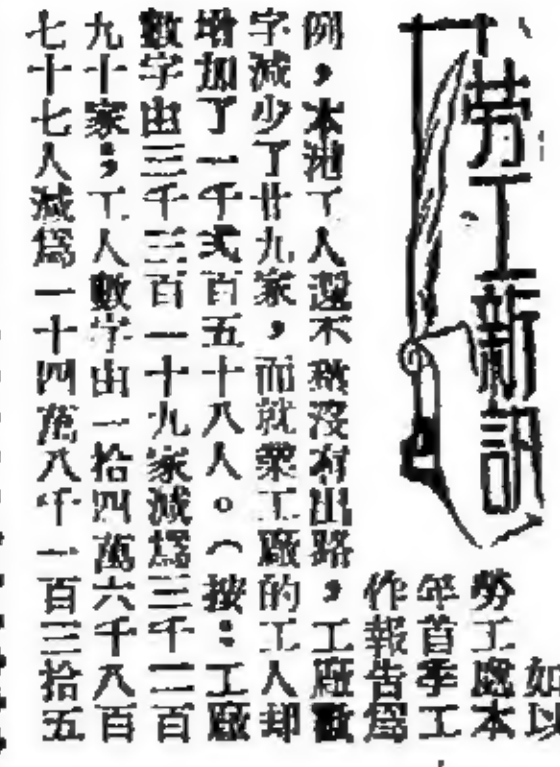 勞工新訊
如以
勞工處本
年首季工
作報告爲
例，本地工人還不致沒有出路，工廠數
字減少了廿九家，而就業工廠的工人却
增加了一千弍百五十八人。（按：工廠
數字由三千三百一十九家減爲三千二百
九十家；工人數字由一拾四萬六千八百
七十七人減爲一十四萬八千一百三拾五